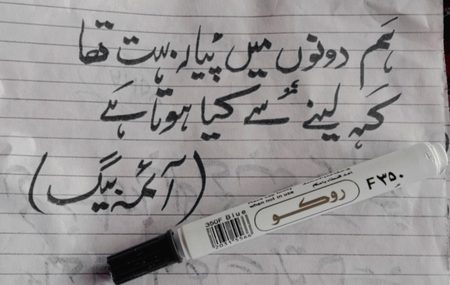 ہم دونوں میں پیار بہت تھا
کہہ لینے سے کیا ہوتا ہے
(آئمہ بیگ)
F۳۵۰
روکو
when not in use
350F Blue